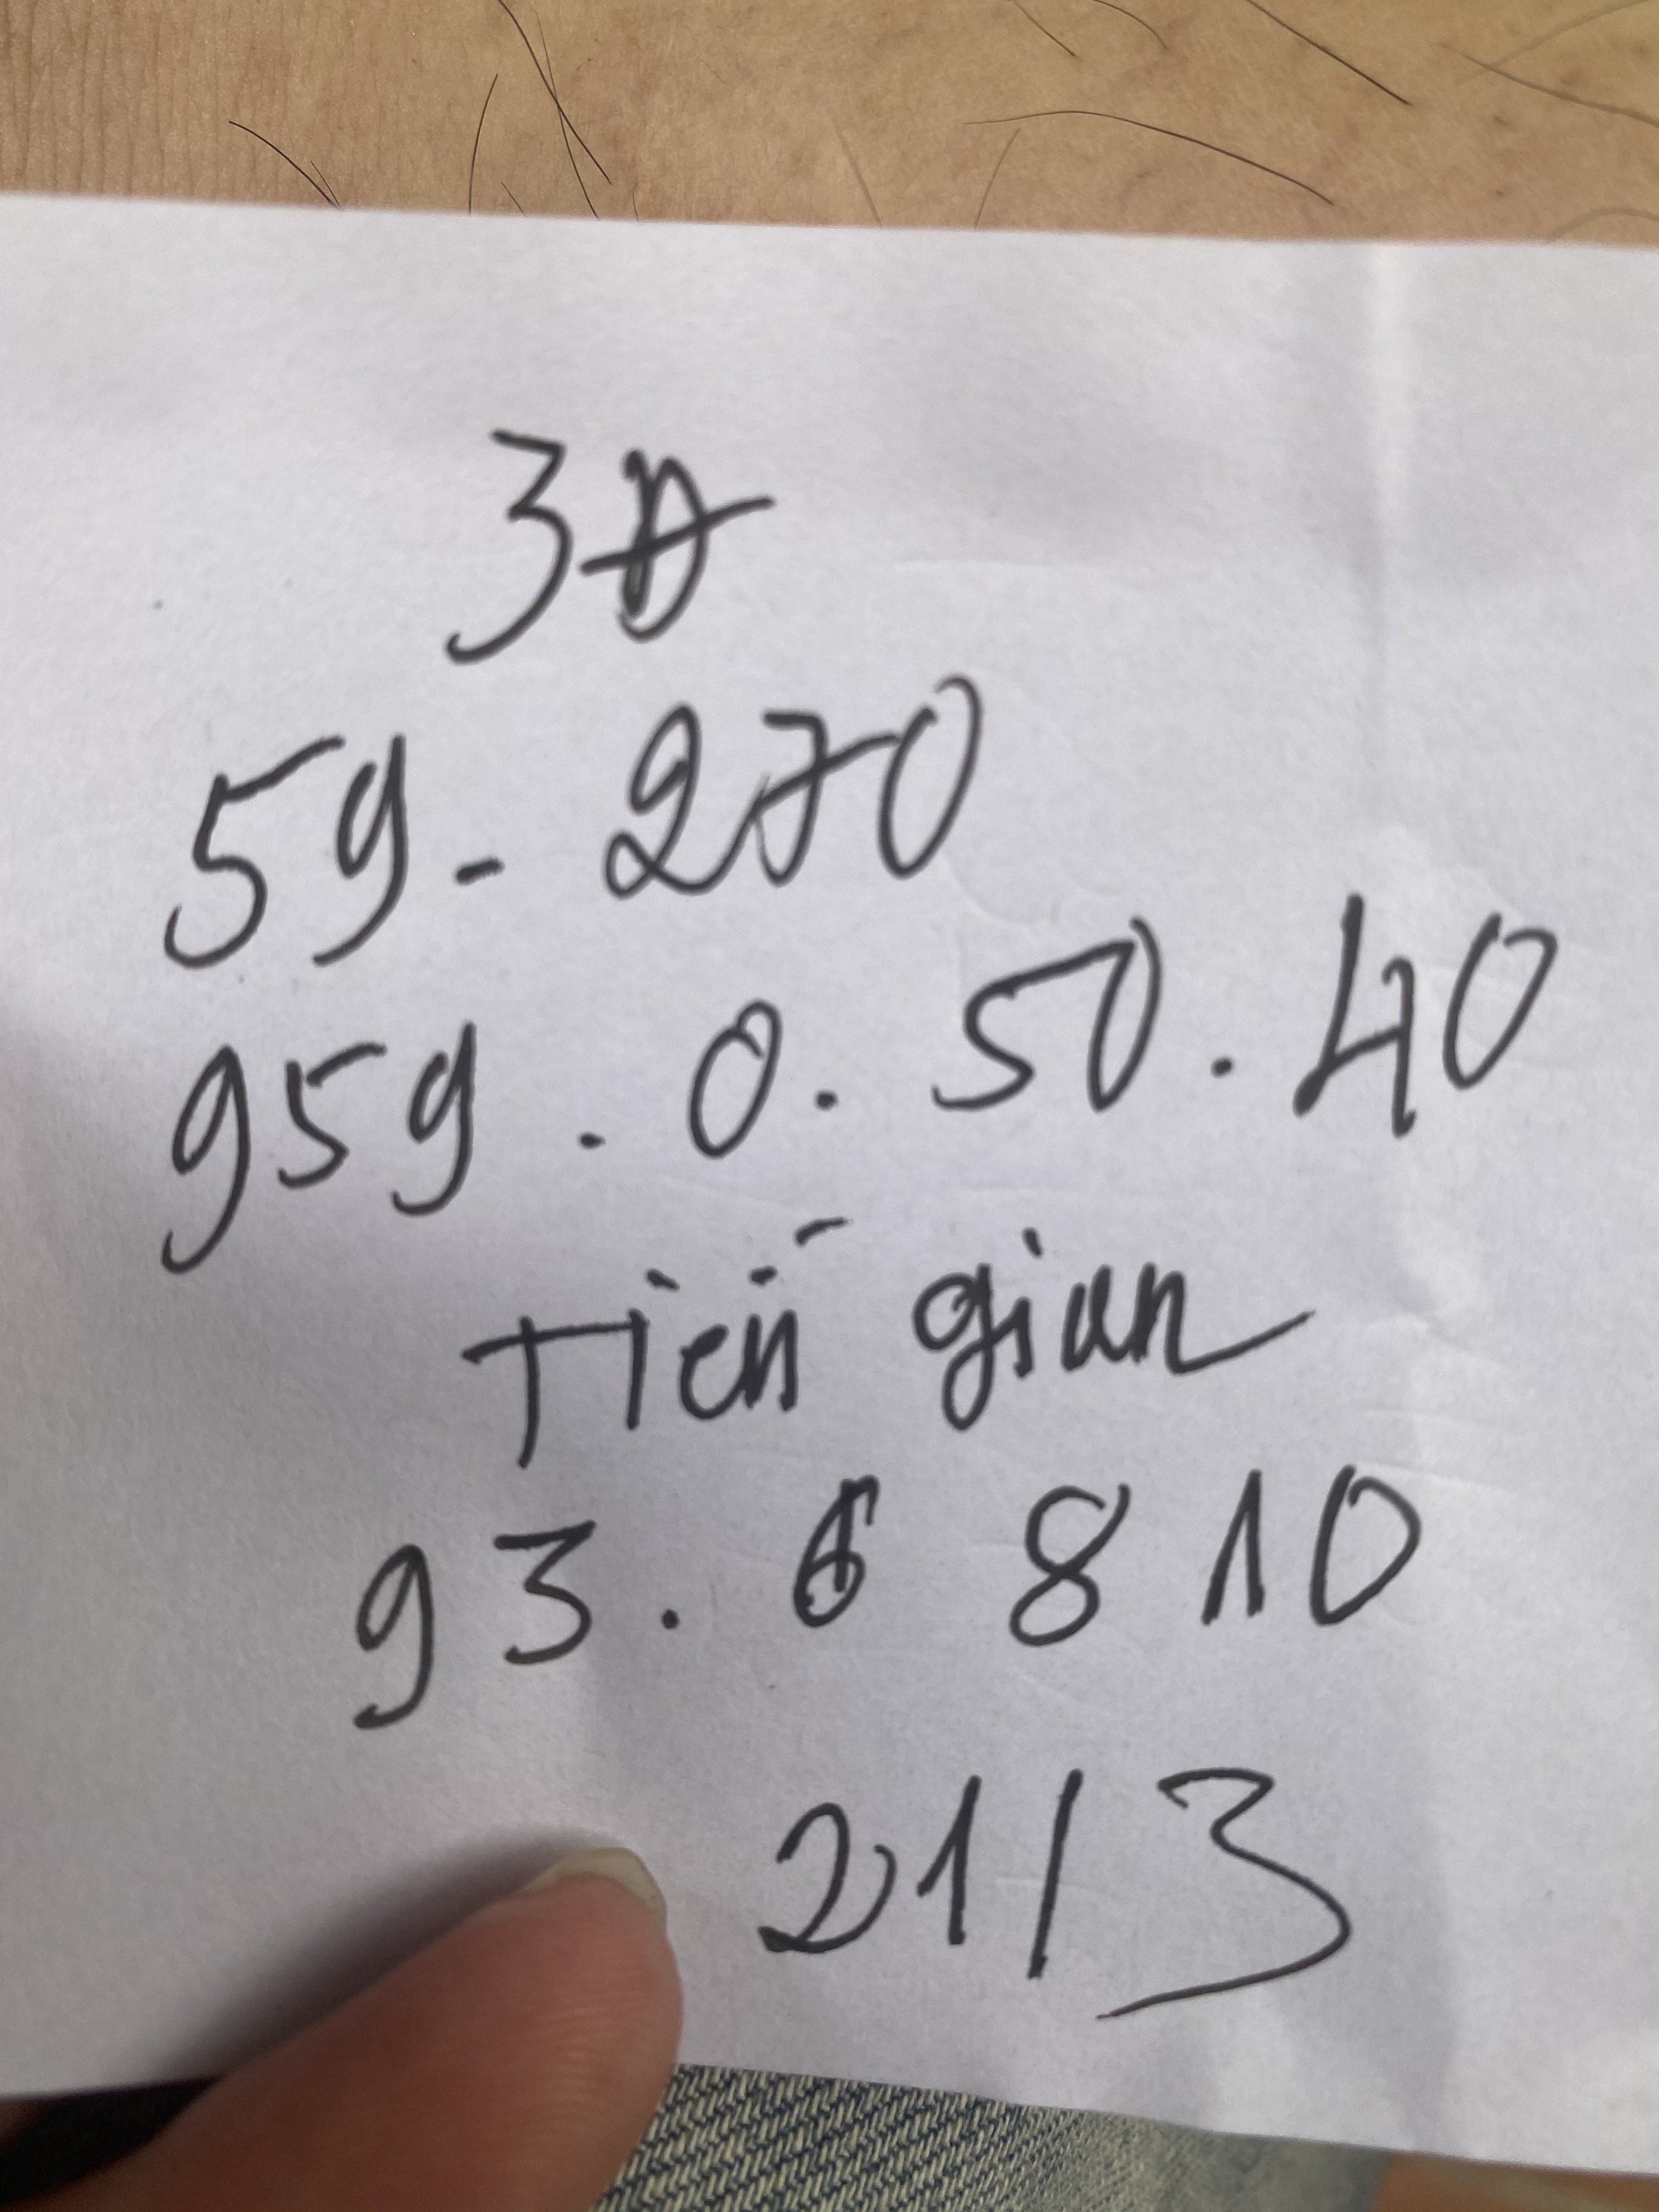 3Đ
59 - 270
959 . 0 . 50 . 40
Tiến gian
93 . 6 8 10
21/3